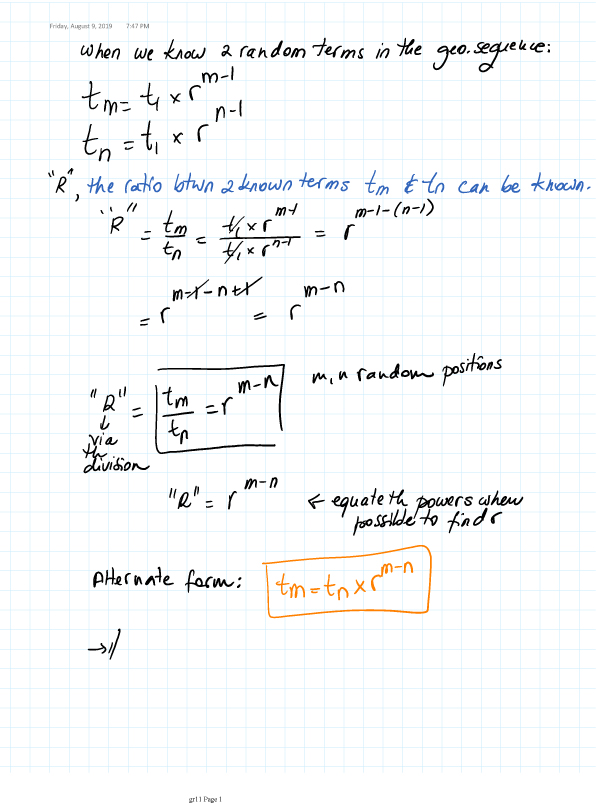 Friday, August 9, 2019 7:47 PM
when we know 2 random terms in the geo. sequence:
tm = t1 × r^m-1
tn = t1 × r^n-1
"R", the ratio btwn 2 known terms tm & tn can be known.
"R" = tm/tn = t1 × r^m-1 / t1 × r^n-1 = r^m-1-(n-1)
= r^m-1-n+1 = r^m-n
"R" = tm/tn = r^m-n m, n random positions
↓
via
th
division
"R" = r^m-n ← equate th powers when
possible to find r
Alternate form: tm = tn × r^m-n
→//
gr11 Page 1